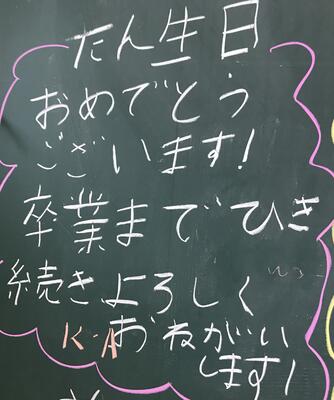 たん生日
おめでとう
ございます!
卒業までひき
続きよろしく
K-A おねがい
します!